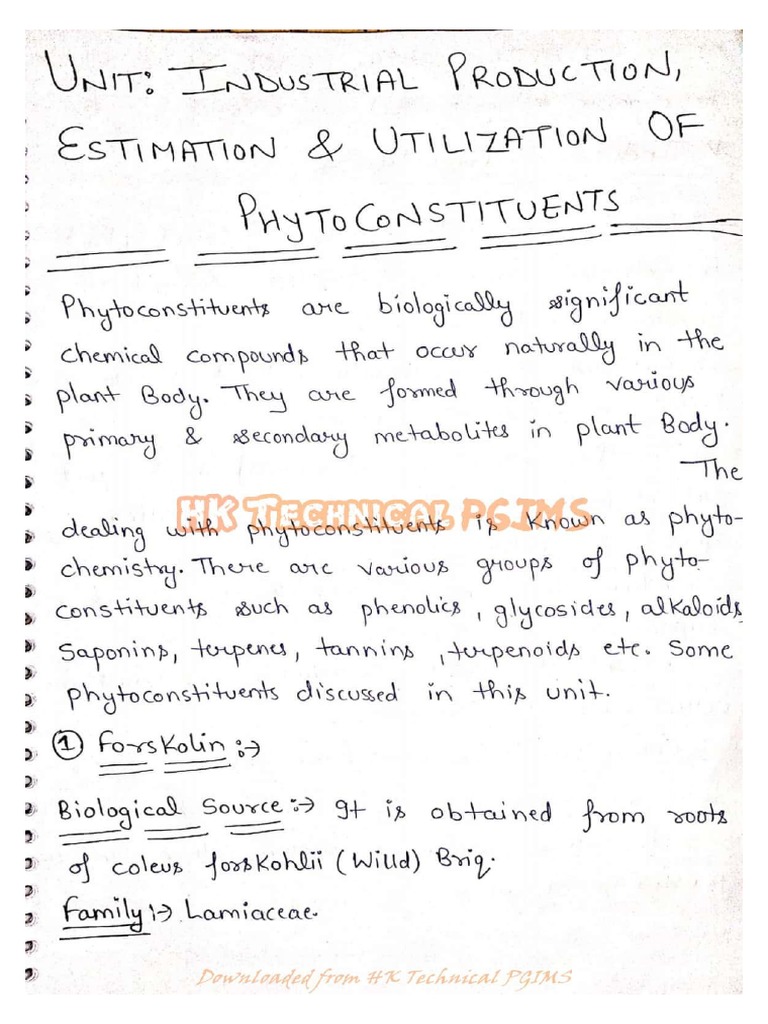 UNIT: INDUSTRIAL PRODUCTION,
ESTIMATION & UTILIZATION OF
PHYTOCONSTITUENTS
Phytoconstituents are biologically significant
chemical compounds that occur naturally in the
plant Body. They are formed through various
primary & secondary metabolites in plant Body.
The
HK TECHNICAL PGIMS
dealing with phytoconstituents is known as phyto-
chemistry. There are various groups of phyto-
constituents such as phenolics, glycosides, alkaloids
Saponins, terpenes, tannins, terpenoids etc. Some
phytoconstituents discussed in this unit.
① Forskolin :→
Biological Source :→ It is obtained from roots
of coleus forskohlii (Willd) Briq.
Family :→ Lamiaceae.
Downloaded from HK Technical PGIMS